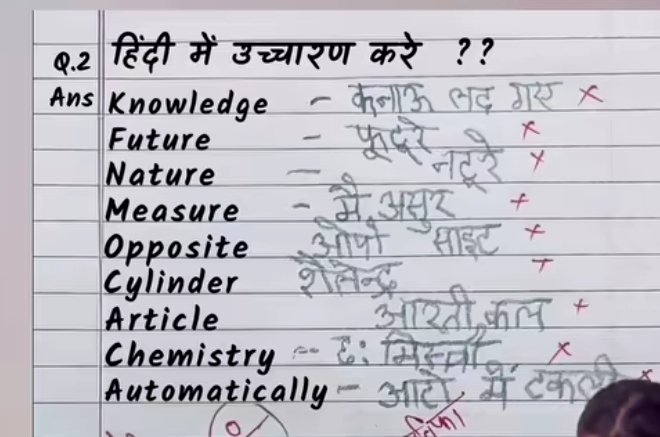 Q.2 हिंदी में उच्चारण करे ??
Ans Knowledge - कनाऊ लद गए ×
Future - फूटूरे ×
Nature — नटूरे ×
Measure - मै असुर ×
Opposite ओपो साइट ×
Cylinder शैलेन्द्र ×
Article आरती कल ×
Chemistry -- छ: मिस्त्री ×
Automatically - आटो में टकली ×
0